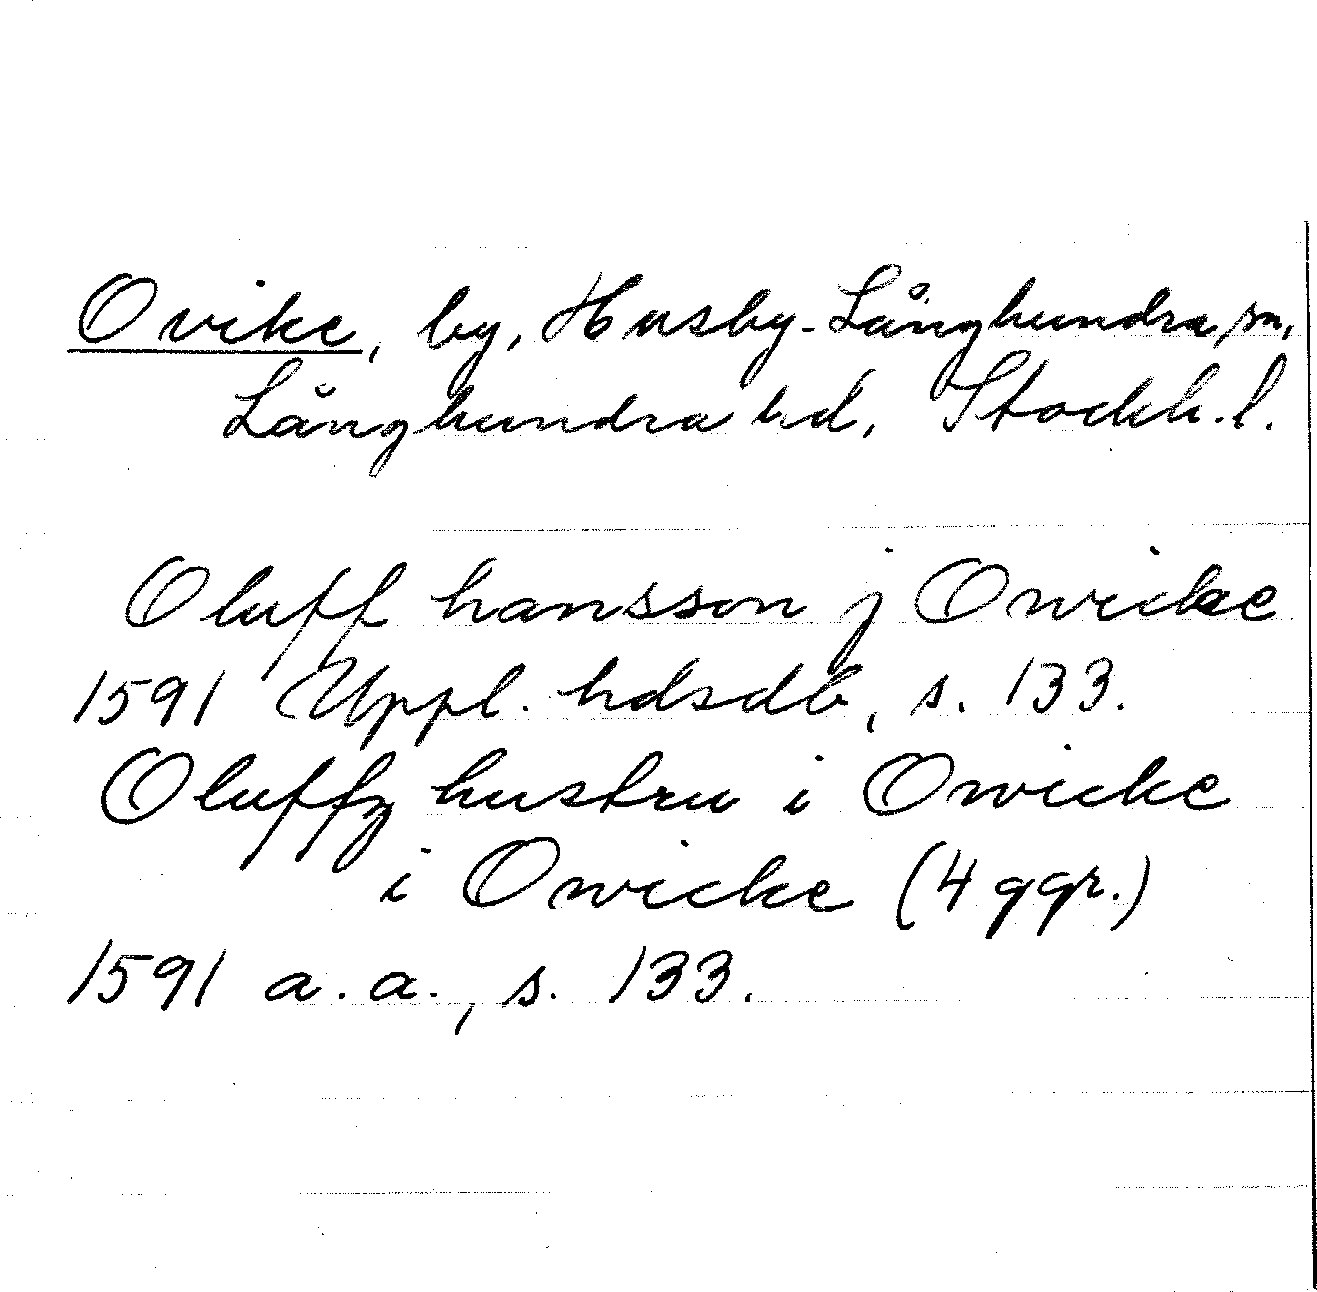 Ovike, by, Husby-Långhundra sn,
Långhundra hd, Stockh. l.
Oluff hansson j Owicke
1591 Uppl. hdsdb, s. 133.
Oluffz hustru i Owicke
i Owicke (4 ggr.)
1591 a. a., s. 133.